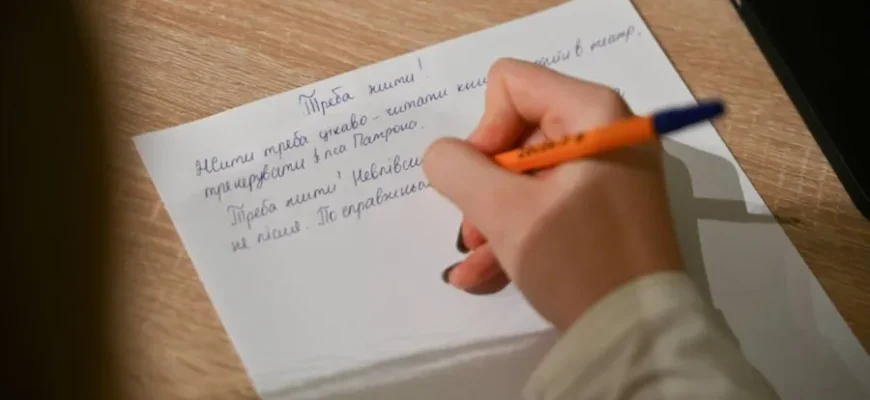 Треба жити!
Жити треба цікаво - читати в театр,
тренувати пса Патрона.
Треба жити!
не після. По справжньому